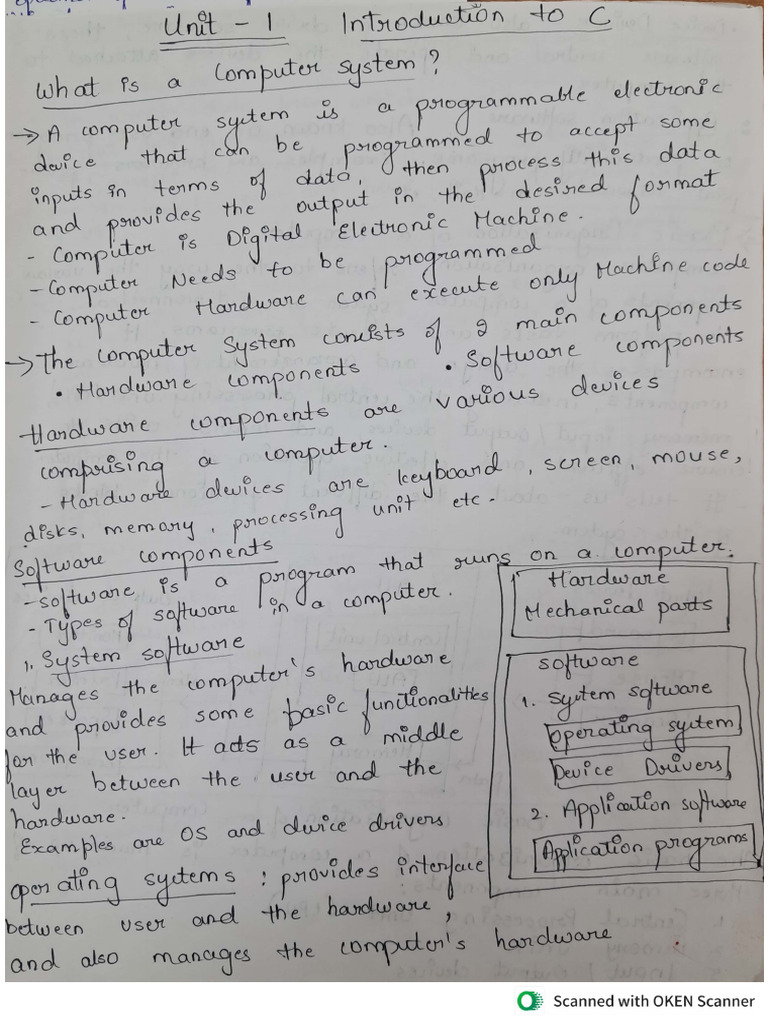 Unit - 1 Introduction to C
What is a Computer System?
→ A computer sytem is a programmable electronic
device that can be programmed to accept some
inputs in terms of data, then process this data
and provides the output in the desired format
- Computer is Digital Electronic Machine.
- Computer Needs to be programmed
- Computer Hardware can execute only Machine code
→ The Computer System consists of 2 main components
• Hardware components • Software components
Hardware components are various devices
comprising a computer.
- Hardware devices are keyboard, screen, mouse,
disks, memory, processing unit etc.
Software components
- software is a program that runs on a computer.
- Types of software in a computer.
1. System software
Manages the computer's hardware
and provides some basic functionalities
for the user. It acts as a middle
layer between the user and the
hardware.
Examples are OS and device drivers
operating sytems : provides interface
between user and the hardware,
and also manages the computer's hardware
Hardware
Mechanical parts
Software
1. System software
Operating sytem
Device Drivers
2. Application software
Application programs
Scanned with OKEN Scanner